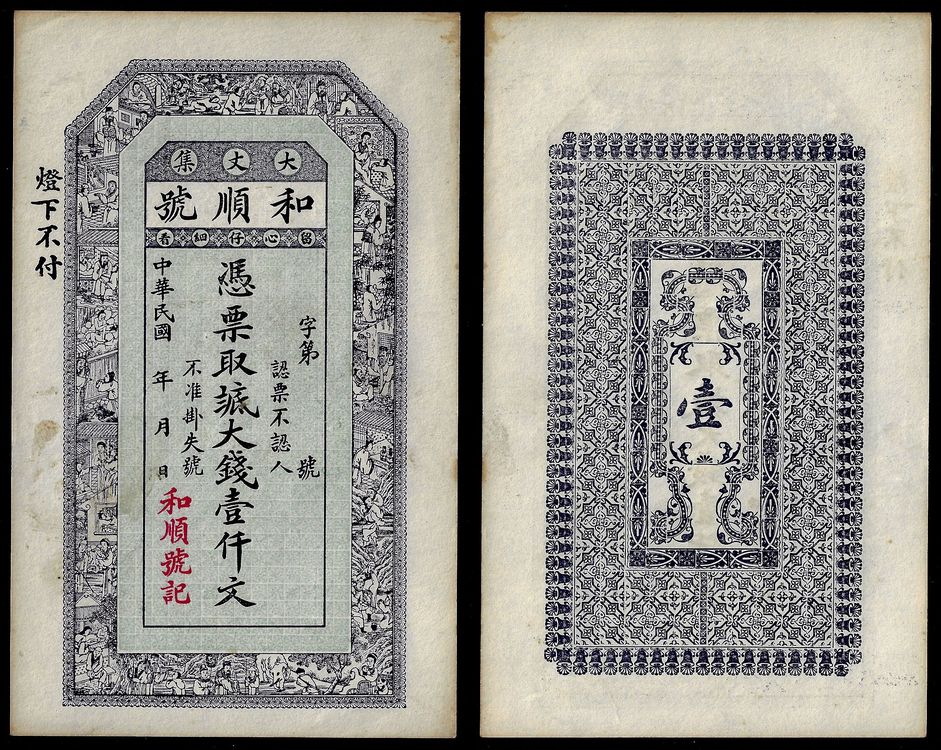 大丈集
和順號
留心仔細看
字第 號
認票不認人
憑票取䟡大錢壹仟文
不准掛失號
中華民國 年 月 日
和順號記
燈下不付
壹